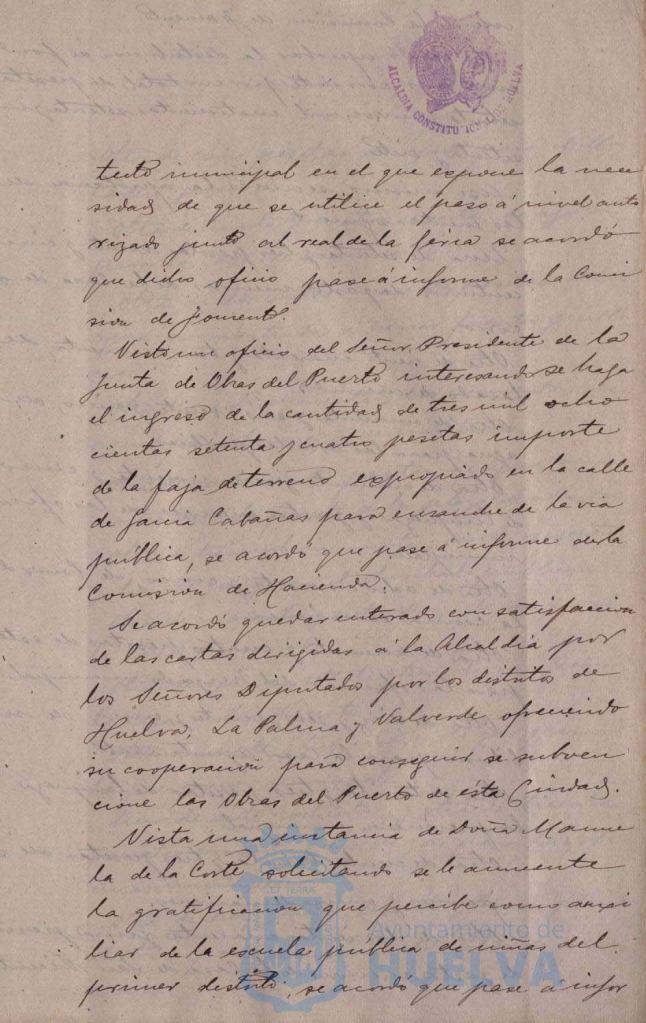 ALCALDIA CONSTITUCIONAL HUELVA
tecto municipal en el que expone la nece
sidad de que se utilice el paso á nivel auto
rizado junto al real de la feria se acordó
que dicho oficio pase á informe de la Comi
sion de Fomento.
Visto un oficio del Señor Presidente de la
Junta de Obras del Puerto interesando se haga
el ingreso de la cantidad de tres mil ocho
cientas setenta y cuatro pesetas importe
de la faja de terreno expropiado en la calle
de Garcia Cabañas para ensanche de la via
pública, se acordó que pase á informe de la
Comision de Hacienda.
Se acordó quedar enterado con satisfaccion
de las cartas dirigidas á la Alcaldia por
los Señores Diputados por los distritos de
Huelva, La Palma y Valverde ofreciendo
su cooperacion para conseguir se subven
cione las Obras del Puerto de ésta Ciudad.
Vista una instancia de Doña Manue
la de la Corte solicitando se le aumente
la gratificacion que percibe como auxi
liar de la escuela pública de niñas del
primer distrito, se acordó que pase a infor
ET TERRAE
Ayuntamiento de
HUELVA